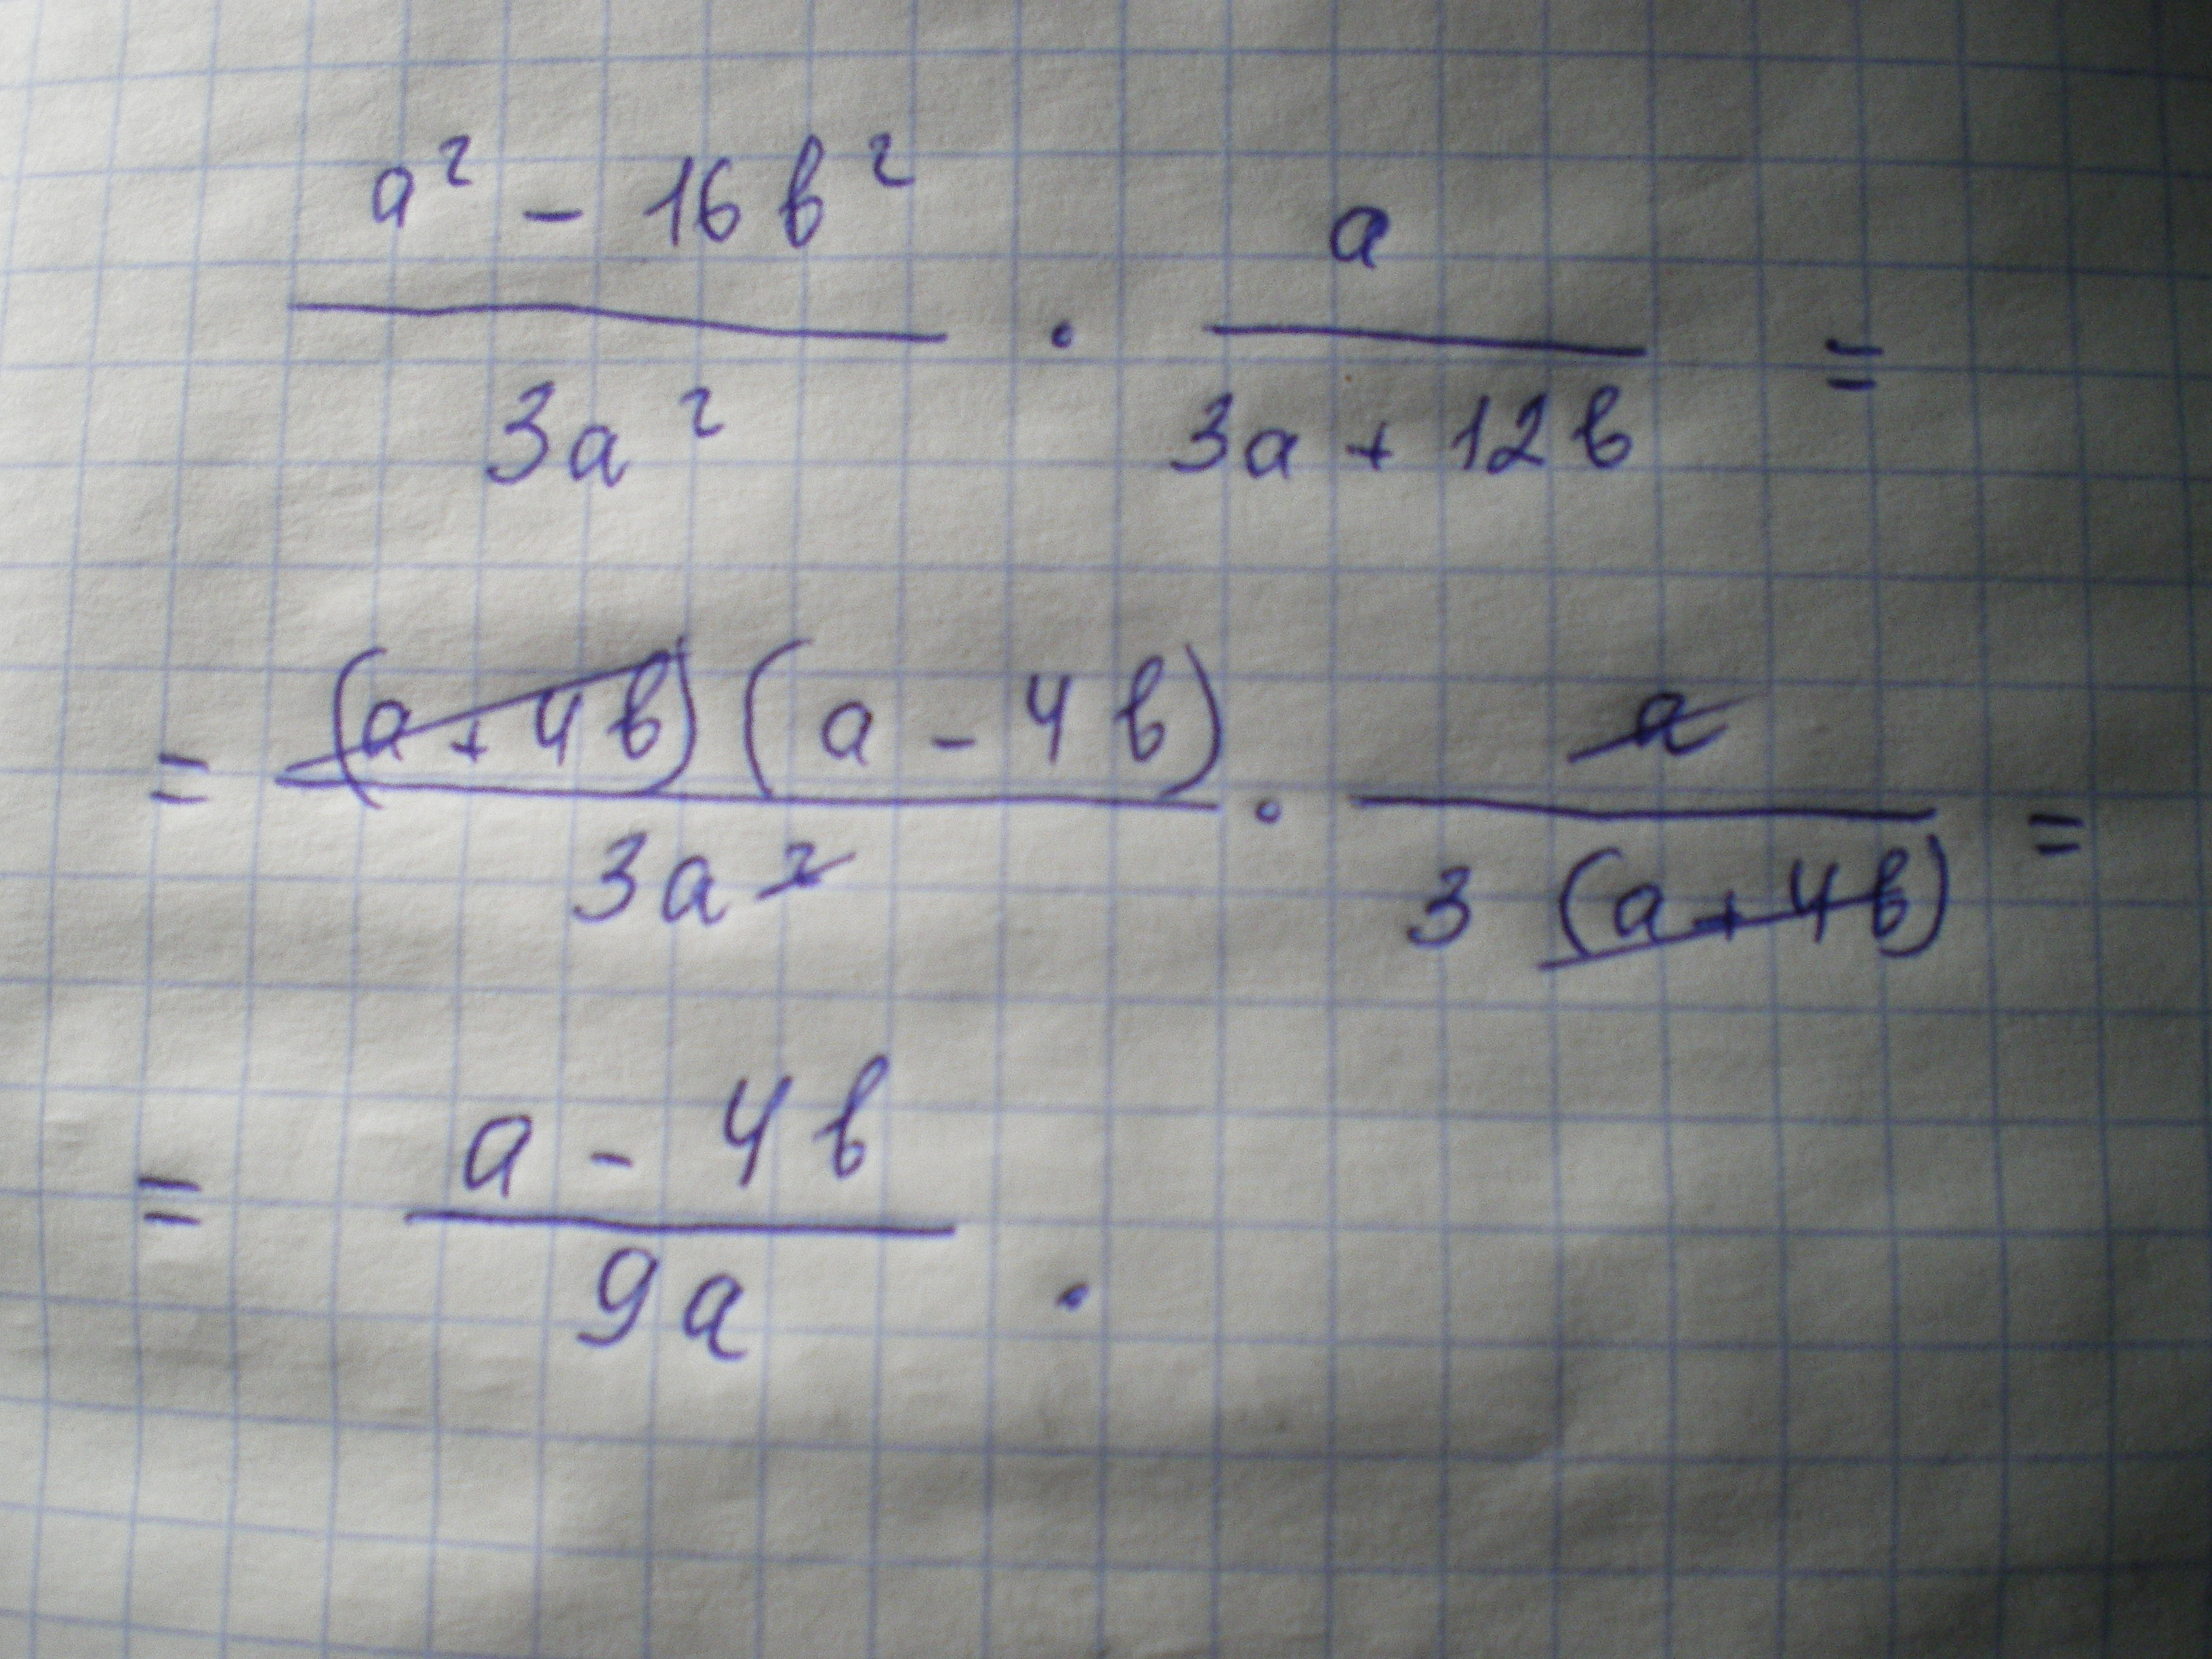 a² - 16b²
a
———— · ———— =
3a²
3a + 12b
(a + 4b) (a - 4b)
a
= ———— · ———— =
3a²
3 (a + 4b)
a - 4b
= ———— .
9a